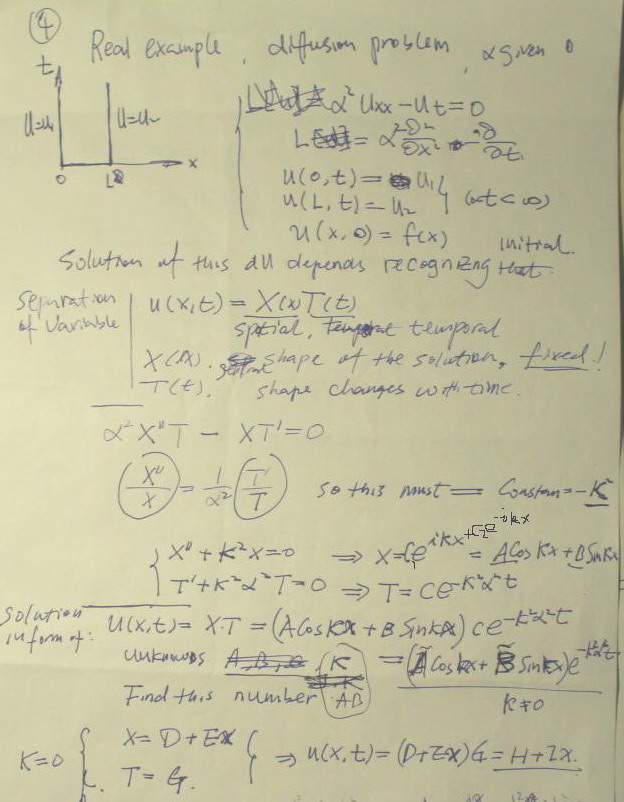 ④ Real example, diffusion problem, α given
t
U=U₁ U=U₂
0 L x
α² Uxx − Ut = 0
L = α² ∂²/∂x² − ∂/∂t
u(0,t) = U₁
u(L,t) = U₂ (0<t<∞)
u(x,0) = f(x) initial
Solution of this all depends recognizing that
Separation of Variable
u(x,t) = X(x)T(t)
spatial, temporal
X(x). general shape of the solution, fixed!
T(t). shape changes with time.
α²X''T − XT' = 0
X''/X = 1/α² T'/T so this must = Constan = −K²
X'' + K²X = 0 ⇒ X = C₁e^{ikx} + C₂e^{-ikx} = A Cos Kx + B Sin Kx
T' + K²α²T = 0 ⇒ T = Ce^{-K²α²t}
Solution in form of: U(x,t) = X·T = (A Cos KX + B Sin KX) ce^{-K²α²t}
unknows K = (Ã Cos kx + B̃ Sin kx)e^{-k²α²t}
Find this number AB K≠0
K=0 X = D + EX
T = G. ⇒ u(x,t) = (D+EX)G = H + IX.